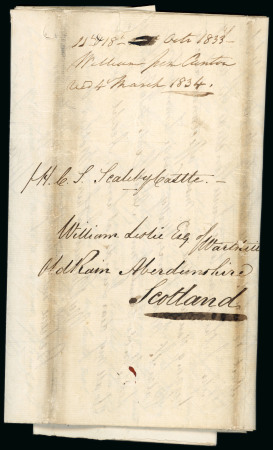 12 & 18 Octr 1833
William from Canton
recd 4 March 1834.
p H. C. S. Scaleby Castle.
William Leslie Esq of Warthill
Old Rain Aberdeenshire
Scotland